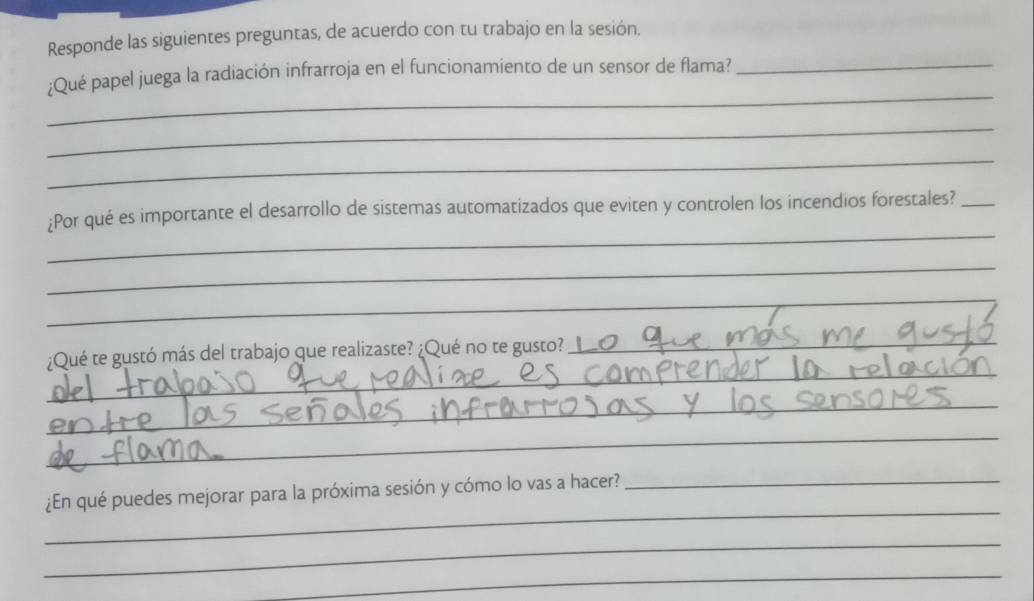 Responde las siguientes preguntas, de acuerdo con tu trabajo en la sesión.
¿Qué papel juega la radiación infrarroja en el funcionamiento de un sensor de flama?
¿Por qué es importante el desarrollo de sistemas automatizados que eviten y controlen los incendios forestales?
¿Qué te gustó más del trabajo que realizaste? ¿Qué no te gusto? Lo que más me gustó
del trabajo que realize es comprender la relación
entre las señales infrarrojas y los sensores
de flama.
¿En qué puedes mejorar para la próxima sesión y cómo lo vas a hacer?